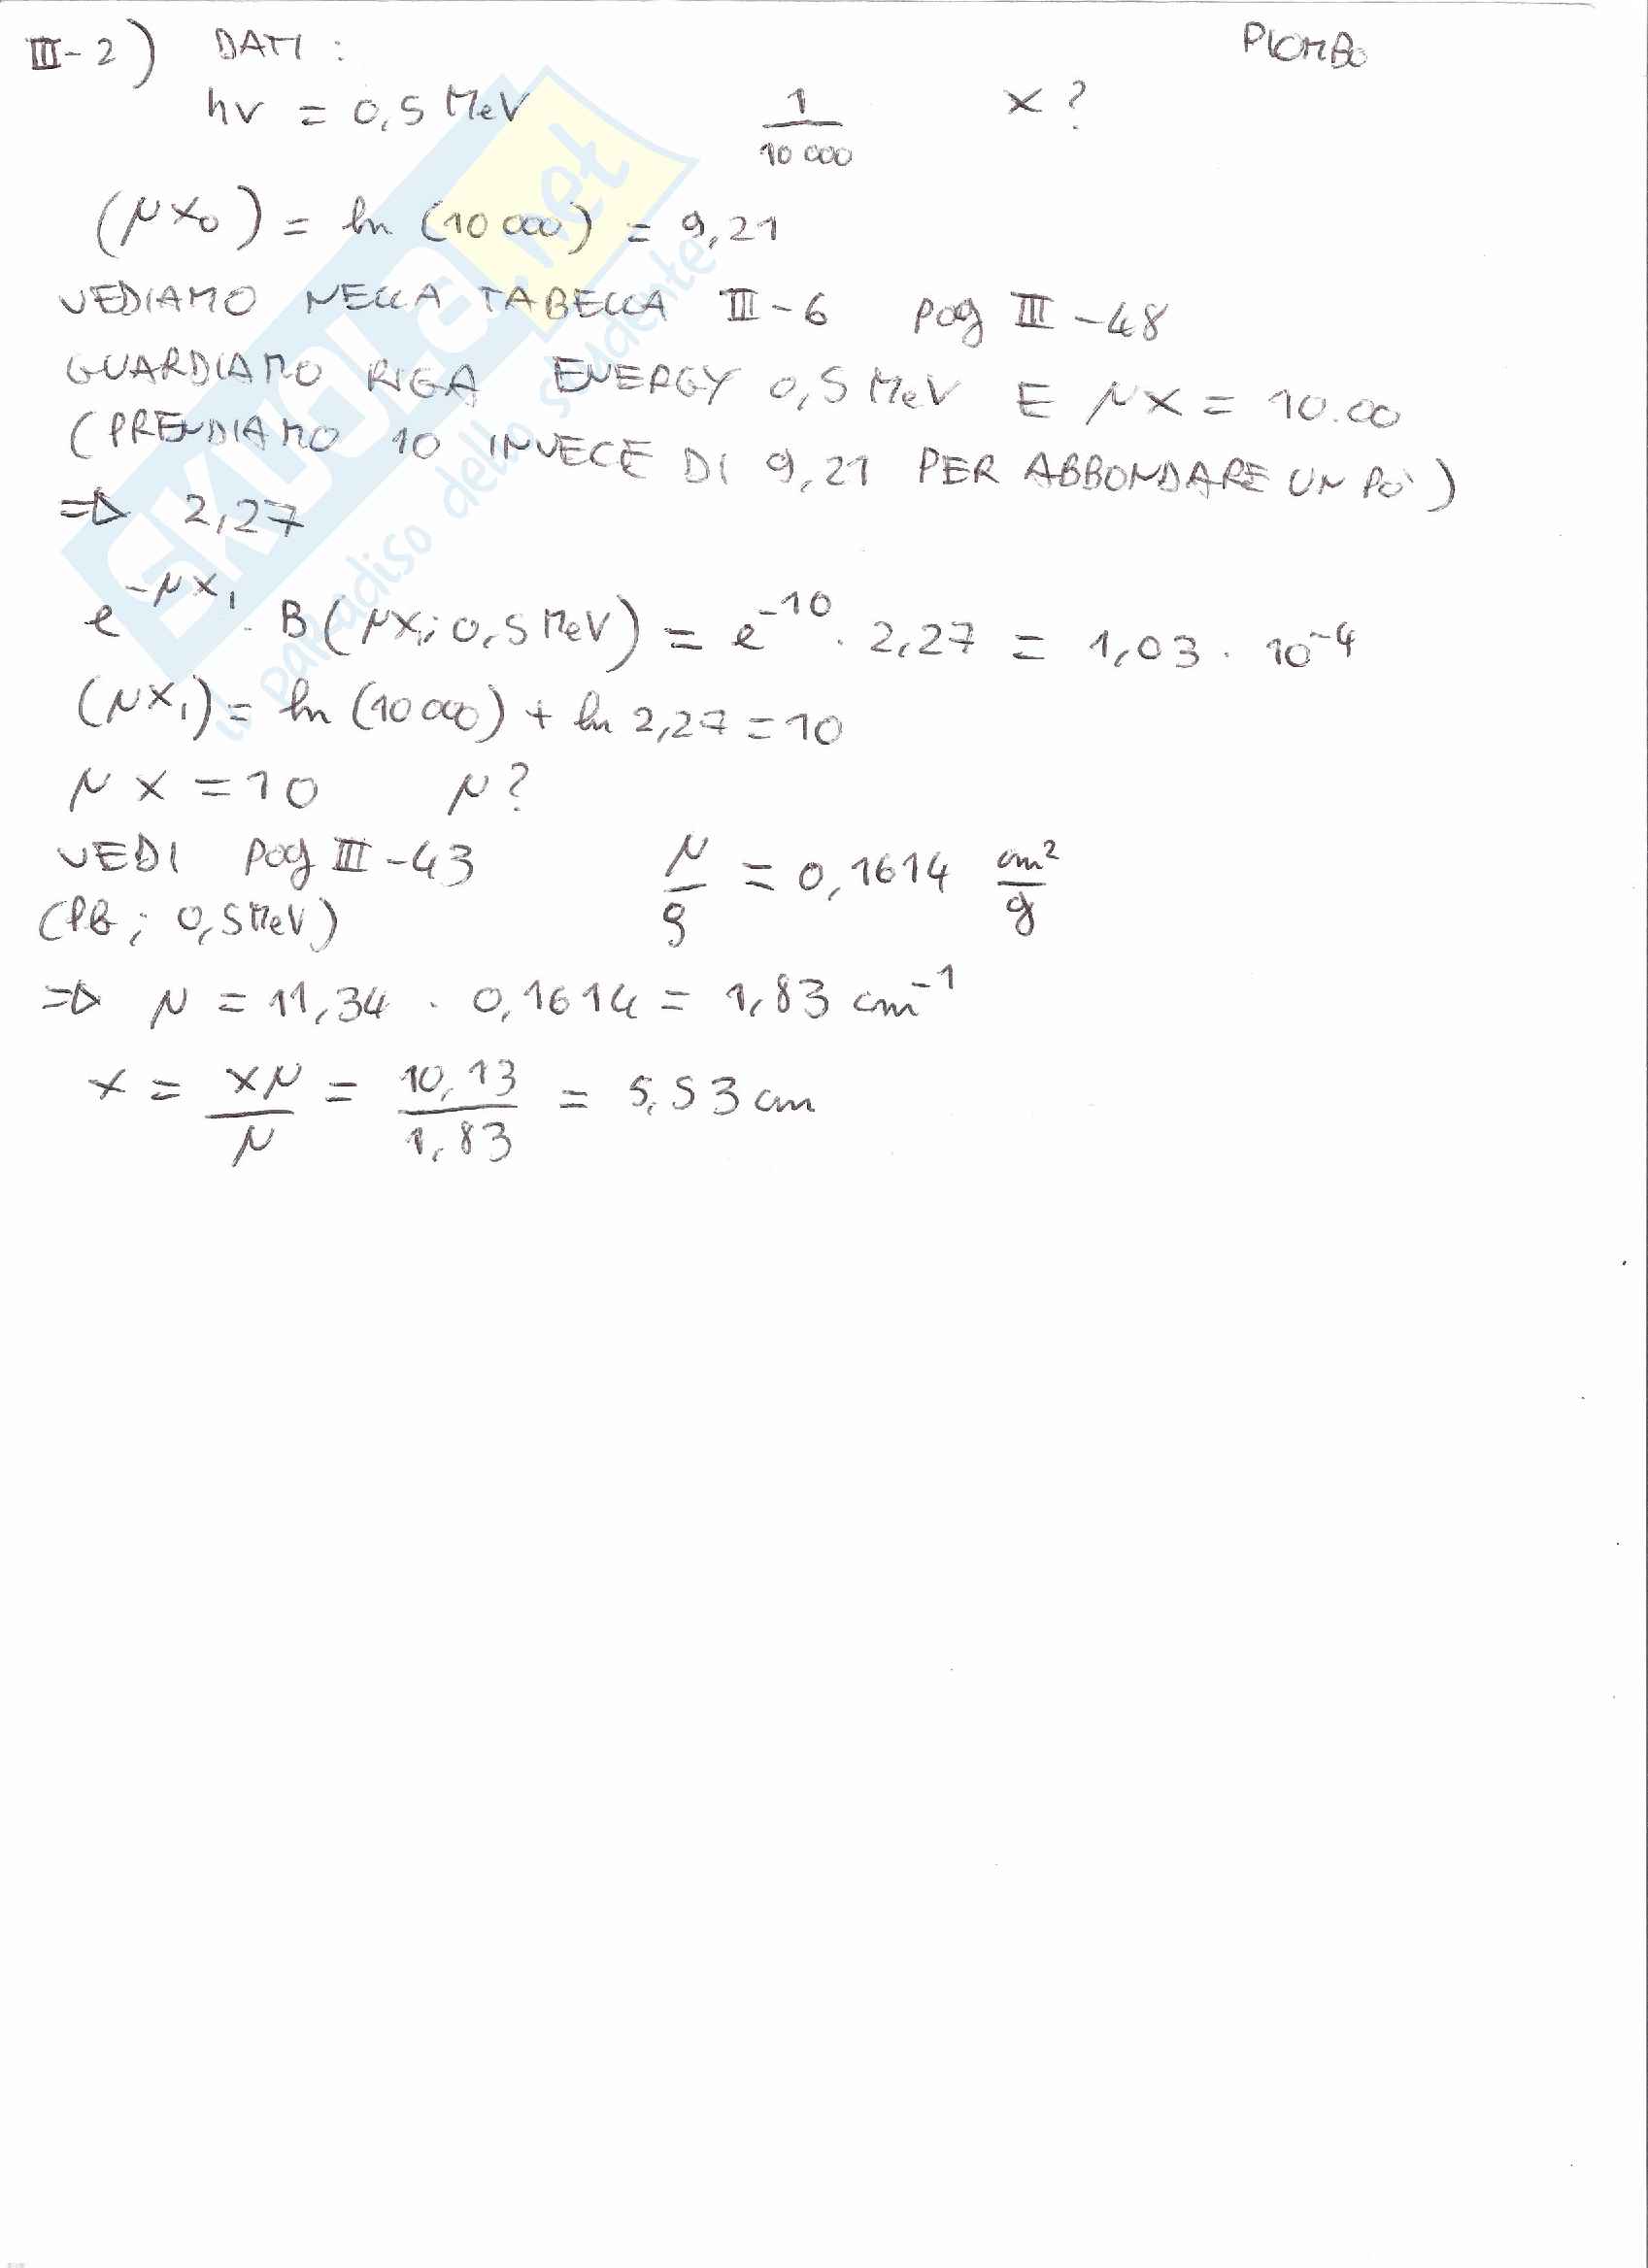 III-2) DATI : PIOMBO
hν = 0,5 MeV 1/10 000 x ?
(μx₀) = ln (10 000) = 9,21
VEDIAMO NELLA TABELLA III-6 pag III-48
GUARDIAMO RIGA ENERGY 0,5 MeV E μx = 10.00
(PRENDIAMO 10 INVECE DI 9,21 PER ABBONDARE UN PO')
=> 2,27
e^(-μx₁) · B(μx₁; 0,5 MeV) = e^(-10) · 2,27 = 1,03 · 10^(-4)
(μx₁) = ln (10 000) + ln 2,27 = 10
μx = 10 μ?
VEDI pag III-43 μ/ρ = 0,1614 cm²/g
(PB; 0,5 MeV)
=> μ = 11,34 · 0,1614 = 1,83 cm⁻¹
x = xμ/μ = 10,13/1,83 = 5,53 cm
SKUOLA.net
il paradiso dello studente